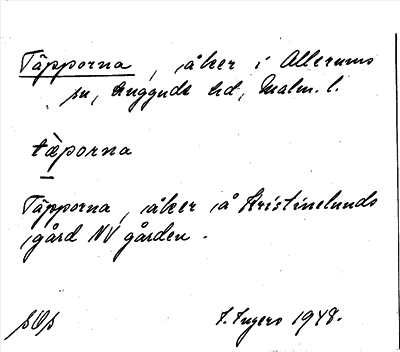 Täpporna, åker i Allerums
sn, Luggude hd, Malm. l.
tæ̀porna
Täpporna, åker å Kristinelunds
gård NV gården.
1948.